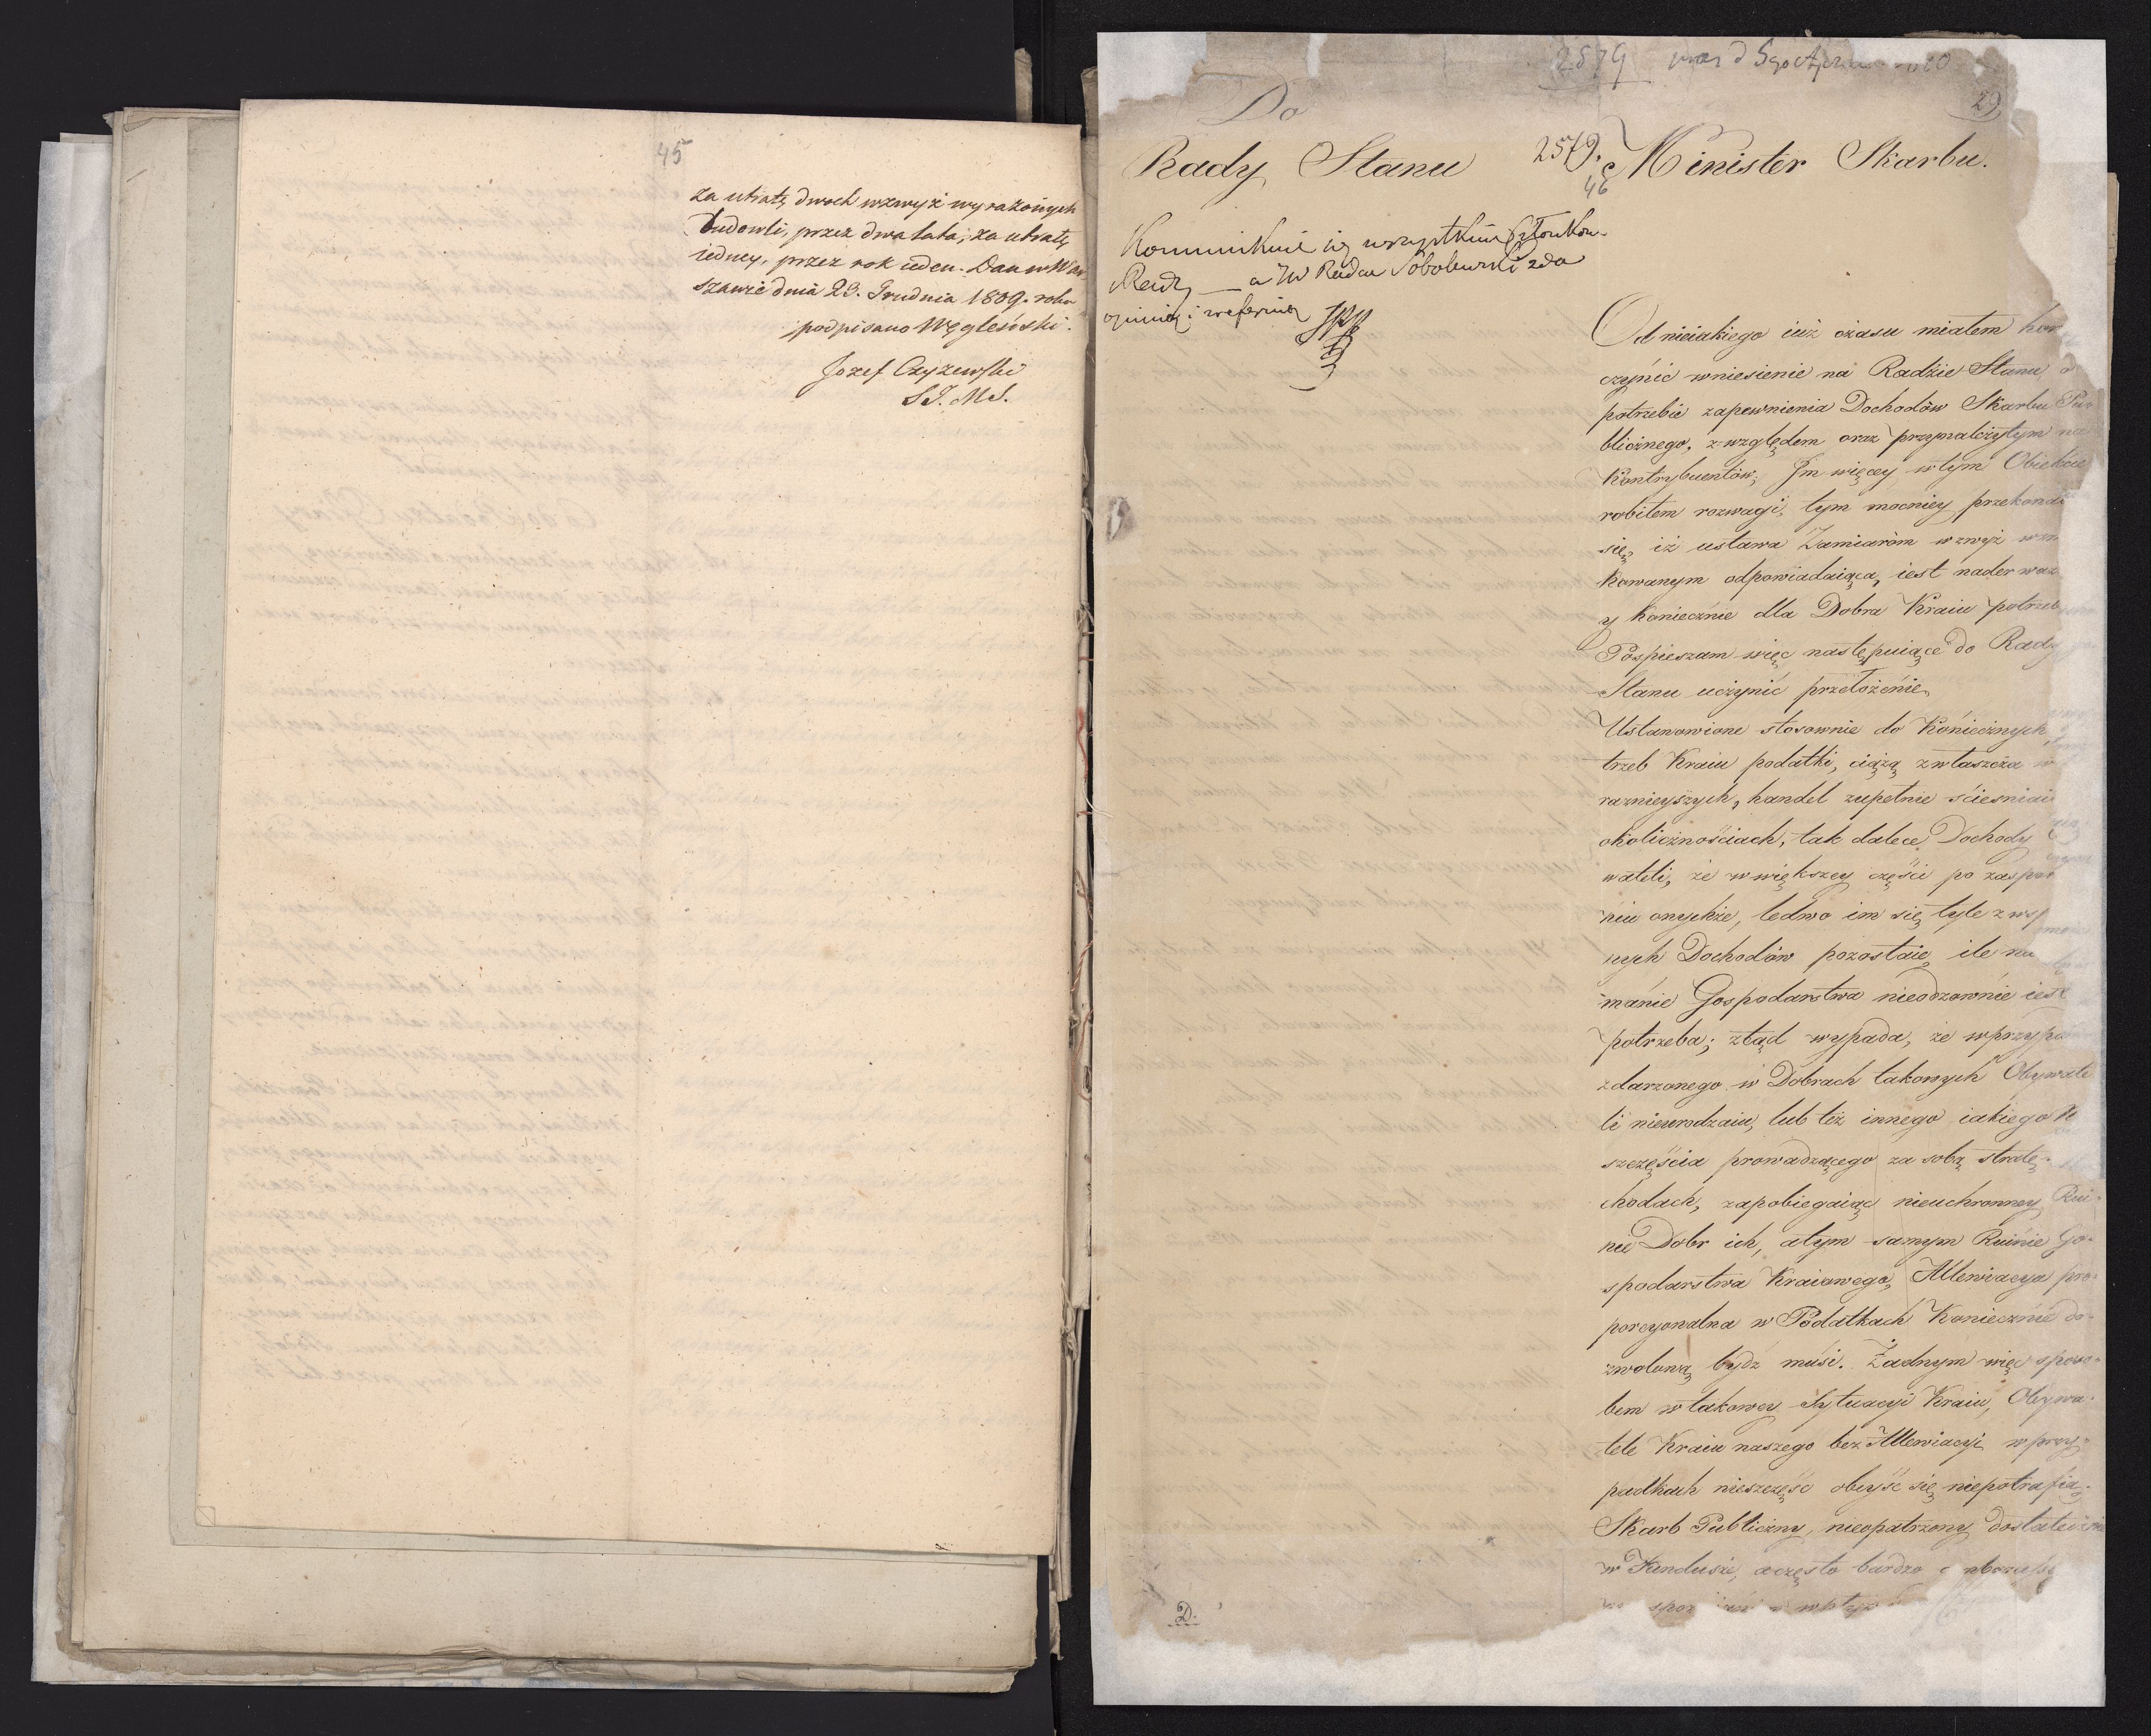 45
za utratę dwoch wzwyż wyrażonych
budowli, przez dwa lata, za utratę
iedney, przez rok ieden. Dan w War
szawie dnia 23. Grudnia 1809. roku
podpisano Węgleński.
Jozef Czyzewski
S. J. M. S.
2579 5go
29
Do
Rady Stanu
2579. Minister Skarbu.
46
Kommunikuie się wszystkim Członkom
Rady a JW Radca Sobolewski zda
opinią i
Od nieiakiego iuż czasu miałem hon
czynić wniesienie na Radzie Stanu o
potrzebie zapewnienia Dochodów Skarbu Pu
blicznego, z względem oraz przynależytym na
Kontrybuentów; Im więcey w tym Obiekcie
robiłem rozwagi, tym mocniey przekona
się, iż ustawa Zamiarom wzwyż
kowanym odpowiadaiąca, iest nader waż
y koniecznie dla Dobra Kraiu potrzeb
Pospieszam więc następuiące do Rady
Stanu uczynić przełożenie.
Ustanowione stosownie do Koniecznych
trzeb Kraiu podatki, ciążą zwłaszcza w
raznieyszych, handel zupełnie ściesniai
okolicznościach, tak dalece Dochody
wateli, że w większey części po zaspo
niu onychże, ledwo im się tyle z
nych Dochodów pozostaie, ile na
manie Gospodarstwa nieodzownie iest
potrzeba; ztąd wypada, że w przypa
zdarzonego w Dobrach takowych Obywate
li nieurodzaiu, lub też innego iakiego N
szczęścia prowadzącego za sobą stratę
chodach, zapobiegaiąc nieuchronney Rui-
nie Dobr ich, a tym samym Ruinie Go-
spodarstwa Kraiowego, Allewiacya pro-
porcyonalna w Podatkach Koniecznie do-
zwoloną bydź musi. Żadnym więc sposo-
bem w takowey Sytuacyi Kraiu, Obywa-
tele Kraiu naszego bez Allewiacyi w przy-
padkach nieszczęść obeyść się niepotrafią.
Skarb Publiczny, nieopatrzony dostatecznie
w Fundusze, a często bardzo
D.